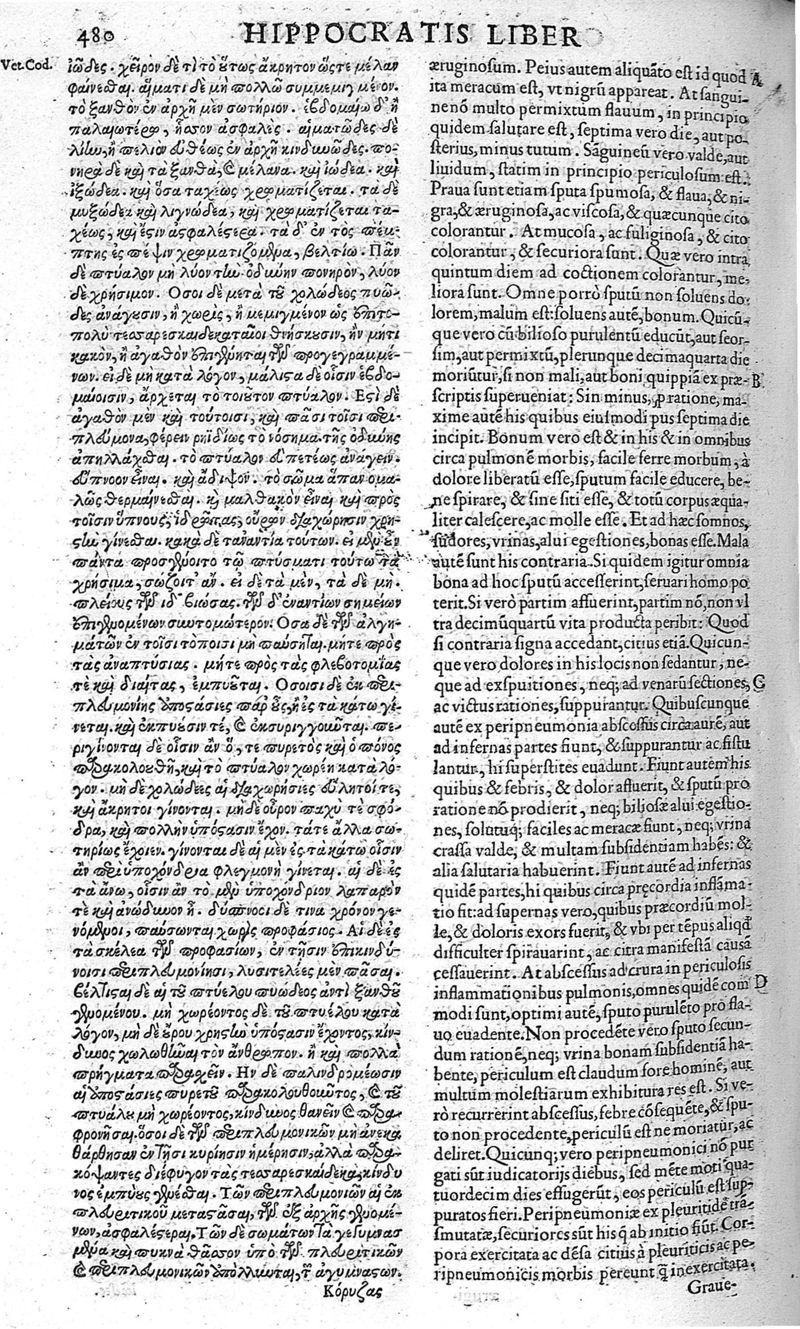 480 HIPPOCRATIS LIBER
Vet. Cod.
ἰώδες. χεῖρον δὲ τὶ τὸ οὕτως ἄκρητον ὥςτε μέλαν
φαίνεσθαι. αἵματι δὲ μὴ πολλῷ συμμεμιγμένον.
τὸ ξανθὸν ἐν ἀρχῇ μὲν σωτήριον. ἑβδομαίῳ δ' ἢ
παλαιωτέρῳ, ἧσσον ἀσφαλές. αἱματῶδες δὲ
λίην, ἢ πελιὸν εὐθέως ἐν ἀρχῇ κινδυνῶδες. πο-
νηρὰ δὲ καὶ τὰ ξανθὰ, καὶ μέλανα. καὶ ἰώδεα. καὶ
ἰξώδεα. καὶ ὅσα ταχέως χρωματίζεται. τὰ δὲ
μυξώδεα καὶ λιγνώδεα, καὶ χρωματίζεται τα-
χέως, καὶ ἐςὶν ἀσφαλέςερα. τὰ δ' ἐν τὸς πέμ-
πτης ἐς πέψιν χρωματιζόμενα, βελτίω. Πᾶν
δὲ πτύαλον μὴ λύον τὴν ὀδύνην πονηρὸν, λύον
δὲ χρήσιμον. Οσοι δὲ μετὰ τοῦ χολώδεος πυῶ-
δες ἀνάγουσιν, ἢ χωρὶς, ἢ μεμιγμένον ὡς ἐπιτο-
πολὺ τεσσαρεσκαιδεκαταῖοι θνήσκουσιν, ἢν μήτι
κακὸν, ἢ ἀγαθὸν ἐπιγένηται τῶν προγεγραμμέ-
νων. εἰ δὲ μὴ κατὰ λόγον, μάλιςα δὲ οἷσιν ἑβδο-
μαίοισιν, ἄρχεται τὸ τοιοῦτον πτύαλον. Εςὶ δὲ
ἀγαθὸν μὲν καὶ τούτοισι, καὶ πᾶσι τοῖσι περι-
πλευμονα, φέρειν ῥηϊδίως τὸ νόσημα. τῆς ὀδύνης
ἀπηλλάχθαι. τὸ πτύαλον εὐπετέως ἀνάγειν.
εὔπνοον εἶναι. καὶ ἄδιψον. τὸ σῶμα ἅπαν ὁμα-
λῶς θερμαίνεσθαι. καὶ μαλθακὸν εἶναι καὶ πρὸς
τοῖσιν ὕπνους, ἱδρῶτας, οὖρον διαχώρησιν χρη-
ςὴν γίνεσθαι. κακὰ δὲ τἀναντία τούτων. εἰ μὲν ἐν
πάντα προσγένοιτο τῷ πτύσματι τούτῳ τὰ
χρήσιμα, σώζοιτ' ἄν. εἰ δὲ τὰ μὲν, τὰ δὲ μὴ.
πλείους τῶν ιδ' βιώσας. τῶν δ' ἐναντίων σημείων
ἐπιγενομένων συντομώτερον. Οσα δὲ τῶν ἀλγη-
μάτων ἐν τοῖσι τόποισι μὴ παύσηται. μήτε πρὸς
τὰς ἀναπτύσιας. μήτε πρὸς τὰς φλεβοτομίας
τὲ καὶ διαίτας, ἐμπυεῦται. Οσοισι δὲ ἐκ περι-
πλευμονίης ἀποςάσιες παρ' οὖς, ἢ ἐς τὰ κάτω γί-
νεται. καὶ ἐκπύουσίν τε, καὶ ἐκσυριγγοῦνται. πε-
ριγίνονται δὲ οἷσιν ἂν ὅ, τε πυρετὸς καὶ ὁ πόνος
παρακολουθῇ, καὶ τὸ πτύαλον χωρέῃ κατὰ λό-
γον. μὴ δὲ χολώδεες αἱ διαχωρήσιες εὔλητοί τε,
καὶ ἄκρητοι γίνονται. μὴ δὲ οὖρον παχύ τε σφό-
δρα, καὶ πολλὴν ὑπόςασιν ἔχον. τά τε ἄλλα σω-
τηρίως ἔχοιεν. γίνονται δὲ αἱ μὲν ἐς τὰ κάτω οἷσιν
ἂν περὶ ὑποχόνδρια φλεγμονὴ γίνεται. αἱ δὲ ἐς
τὰ ἄνω, οἷσιν ἂν τὸ μὲν ὑποχόνδριον λαπαρόν
τε καὶ ἀνώδυνον ᾖ. δύσπνοοι δὲ τινα χρόνον γε-
νόμενοι, παύσωνται χωρὶς προφάσιος. Αἱ δὲ ἐς
τὰ σκέλεα τῶν προφασίων, ἐν τῇσιν ἐπικινδύ-
νοισι περιπλευμονίῃσι, λυσιτελέες μὲν πᾶσαι.
βέλτιςαι δὲ αἱ τοῦ πτυέλου πυώδεος ἀντὶ ξανθοῦ
γενομένου. μὴ χωρέοντος δὲ τοῦ πτυέλου κατὰ
λόγον, μὴ δὲ οὔρου χρηςὴν ὑπόςασιν ἔχοντος, κίν-
δυνος χωλωθῆναι τὸν ἄνθρωπον. ἢ καὶ πολλὰ
πρήγματα παρασχεῖν. Ην δὲ παλινδρομέωσιν
αἱ ἀποςάσιες πυρετοῦ παρακολουθοῦντος, καὶ τοῦ
πτυάλου μὴ χωρέοντος, κίνδυνος θανεῖν καὶ παρα-
φρονῆσαι. ὅσοι δὲ τῶν περιπλευμονικῶν μὴ ἀνεκα-
θάρθησαν ἐν τῇσι κυρίῃσιν ἡμέρῃσιν, ἀλλὰ παρα-
κόψαντες διέφυγον τὰς τεσσαρεσκαίδεκα, κίνδυ-
νος ἐμπύους γενέσθαι. Τῶν περιπλευμονιῶν αἱ ἐκ
πλευρίτιδος μεταςᾶσαι, τῶν ἐξ ἀρχῆς γενομέ-
νων, ἀσφαλέςεραι, Τῶν δὲ σωμάτων τὰ γεγυμνασ
μένα καὶ πυκνὰ θᾶσσον ὑπὸ τῶν πλευριτικῶν
καὶ περιπλευμονικῶν ἀπόλλυνται, τῶν ἀγυμνάςων.
Κόρυζας
æruginosum. Peius autem aliquāto est id quod A
ita meracum est, vt nigrū appareat. At sangui-
ne nō multo permixtum flauum, in principio
quidem salutare est, septima vero die, aut po-
sterius, minus tutum. Sāguineū vero valde, aut
liuidum, statim in principio periculosum est.
Praua sunt etiam sputa spumosa, & flaua, & ni-
gra, & æruginosa, ac viscosa, & quæcunque cito
colorantur. At mucosa, ac fuliginosa, & cito
colorantur, & securiora sunt. Quæ vero intra
quintum diem ad coctionem colorantur, me-
liora sunt. Omne porrò sputū non soluens do-
lorem, malum est: soluens autē, bonum. Quicū-
que vero cū bilioso purulentū educūt, aut seor-
sim, aut permixtū, plerunque decimaquarta die
moriūtur, si non mali, aut boni quippiā ex præ- B
scriptis superueniat: Sin minus, p ratione, ma-
xime autē his quibus eiusmodi pus septima die
incipit. Bonum vero est & in his & in omnibus
circa pulmonē morbis, facile ferre morbum, à
dolore liberatū esse, sputum facile educere, be-
ne spirare, & sine siti esse, & totū corpus æqua-
liter calescere, ac molle esse. Et ad hæc somnos,
sudores, vrinas, alui egestiones, bonas esse. Mala
autē sunt his contraria. Si quidem igitur omnia
bona ad hoc sputū accesserint, seruari homo po
terit. Si verò partim affuerint, partim nō, non vl
tra decimūquartū vita producta peribit: Quod
si contraria signa accedant, citius etiā. Quicun-
que vero dolores in his locis non sedantur, ne-
que ad exspuitiones, neq; ad venarū sectiones, C
ac victus rationes, suppurantur. Quibuscunque
autē ex peripneumonia abscessus circa aurē, aut
ad infernas partes fiunt, & suppurantur ac fistu
lantur, hi superstites euadunt. Fiunt autem his
quibus & febris, & dolor affuerit, & sputū pro
ratione nō prodierit, neq; biliosæ alui egestio-
nes, solutuq; faciles ac meracæ fiunt, neq; vrina
crassa valde, & multam subsidentiam habēs: &
alia salutaria habuerint. Fiunt autē ad infernas
quidē partes, hi quibus circa pręcordia inflāma-
tio fit: ad supernas vero, quibus præcordiū mol-
le, & doloris exors fuerit, & vbi per tēpus aliqd
difficulter spirauerint, ac citra manifestā causā
cessauerint. At abscessus ad crura in periculosis
inflammationibus pulmonis, omnes quidē com D
modi sunt, optimi autē, sputo purulēto pro fla-
uo euadente. Non procedēte vero sputo secun-
dum rationē, neq; vrina bonam subsidentiā ha-
bente, periculum est claudum fore hominē, aut
multum molestiarum exhibitura res est. Si ve-
rò recurrerint abscessus, febre cōsequēte, & spu-
to non procedente, periculū est ne moriatur, ac
deliret. Quicunq; vero peripneumonici nō pur
gati sūt iudicatorijs diebus, sed mēte moti qua-
tuordecim dies effugerūt, eos periculū est sup
puratos fieri. Peripneumoniæ ex pleuritide trā-
smutatæ, securiores sūt his q̄ ab initio fiūt. Cor-
pora exercitata ac dēsa citius à pleuriticis ac pe-
ripneumonicis morbis pereunt q̄ inexercitata.
Graue-